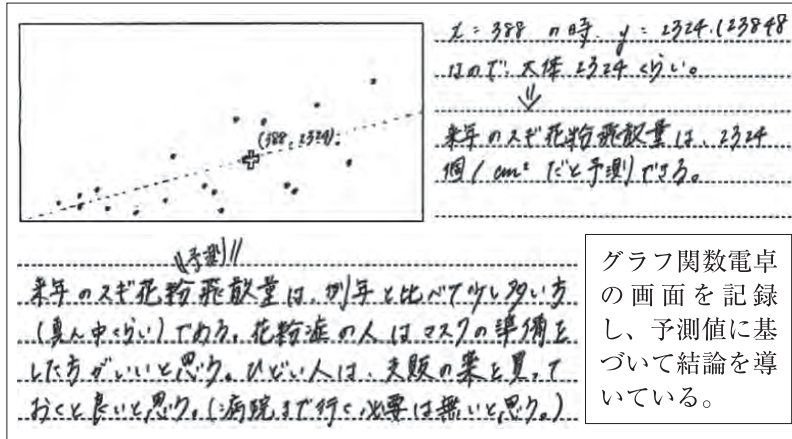 x = 388 の時 y = 2324.123848
なので、大体 2324 くらい。
⇓
来年のスギ花粉飛散量は、2324
個/cm² だと予測できる。
(388, 2324)
〝予測〟
来年のスギ花粉飛散量は、例年と比べて少し多い方
(真ん中くらい)である。花粉症の人はマスクの準備を
した方がいいと思う。ひどい人は、市販の薬を買って
おくと良いと思う。(病院まで行く必要は無いと思う。)
グラフ関数電卓
の画面を記録
し、予測値に基
づいて結論を導
いている。